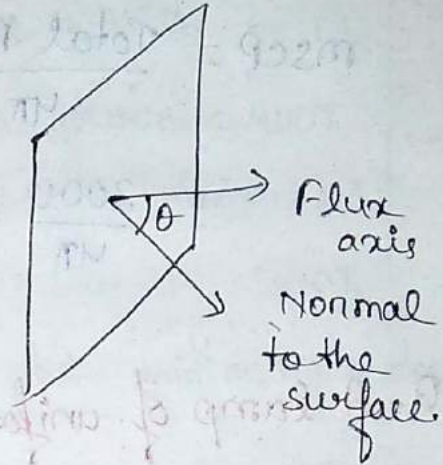 θ
Flux
axis
Normal
to the
surface.